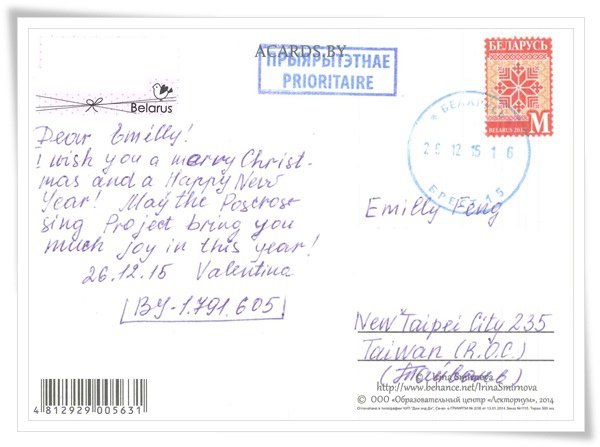 ACARDS.BY
ПРЫЯРЫТЭТНАЕ
PRIORITAIRE
БЕЛАРУСЬ
M
Belarus
БЕЛАРУСЬ
15 16
Dear Emilly!
I wish you a marry Christ-
mas and a Happy New
Year! May the Poscros-
sing Project bring you
much joy in this year!
26.12.15 Valentina
BY-1.791.605
Emilly Feng
New Taipei City 235
Taiwan (R.O.C.)
(Тайвань)
© Irina Smirnova
http://www.behance.net/IrinaSmirnova
© ООО «Образовательный центр «Лекториум», 2014
4 812929 005631